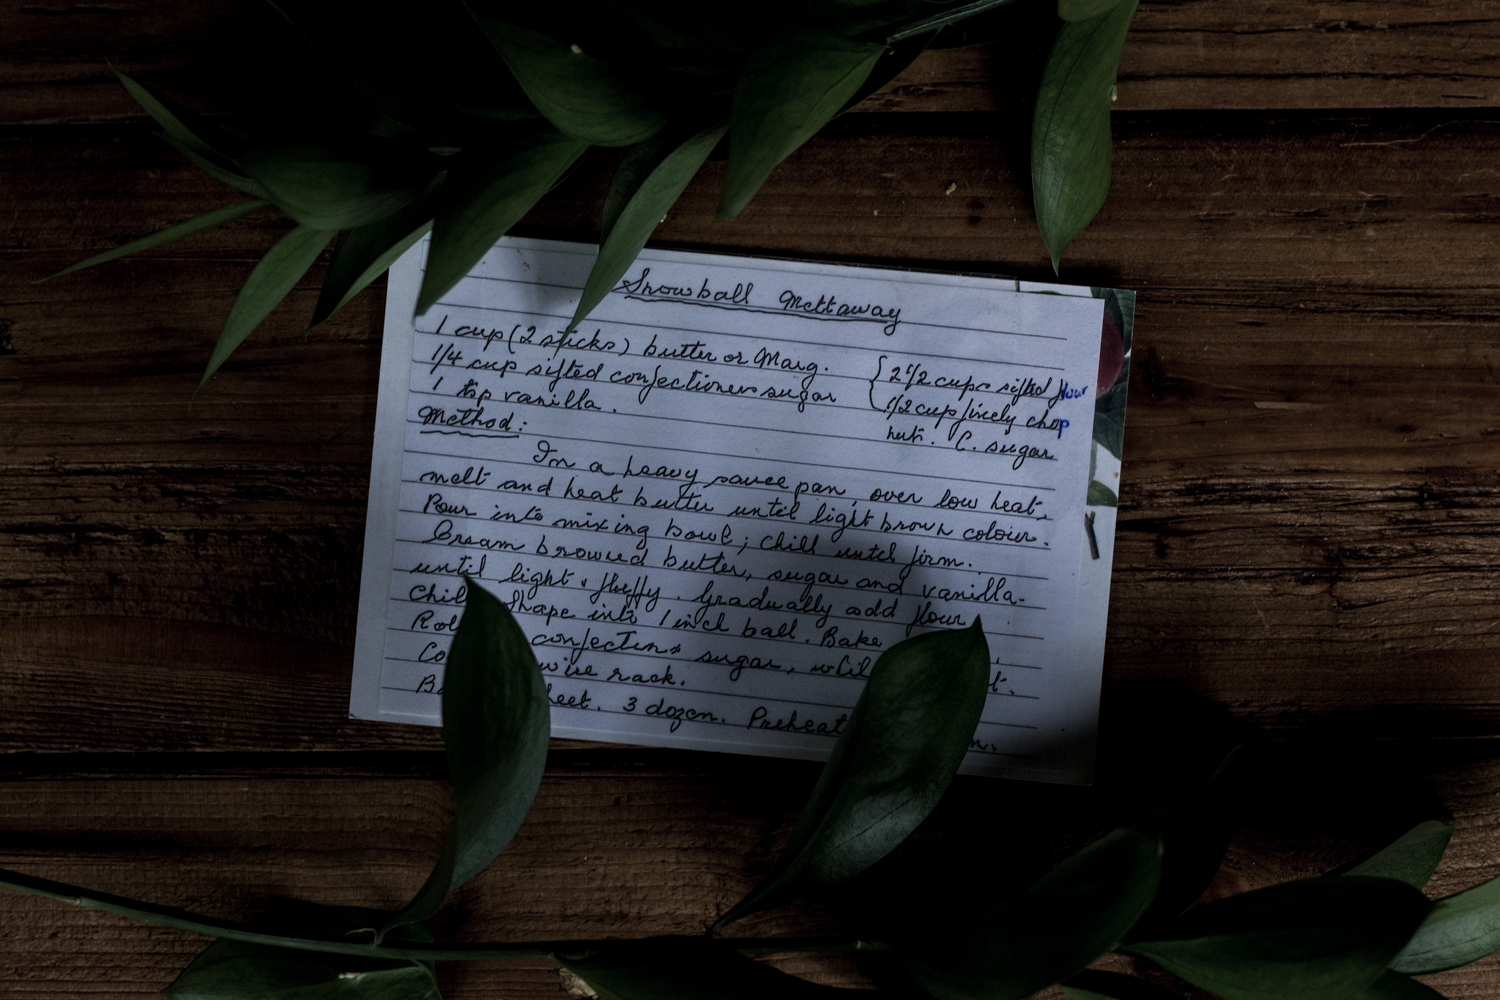 Snowball Meltaway
1 cup (2 sticks) butter or Marg.
1/4 cup sifted confectioners sugar
1 tsp vanilla.
{ 2 1/2 cups sifted flour
1/2 cup finely chop
nuts. C. sugar
Method:
In a heavy sauce pan, over low heat,
melt and heat butter until light brown colour.
Pour into mixing bowl; chill until firm.
Cream browned butter, sugar and vanilla
until light & fluffy. Gradually add flour
Shape into 1 inch ball. Bake
sugar,
wire rack.
3 dozen. Preheat